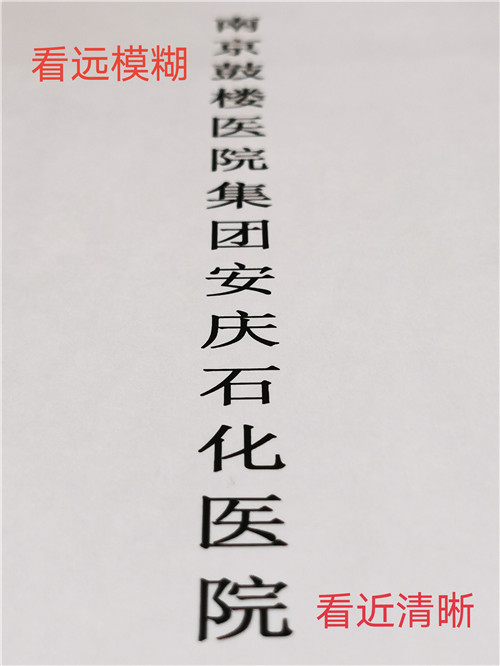 看远模糊
南京鼓楼医院集团安庆石化医院
看近清晰